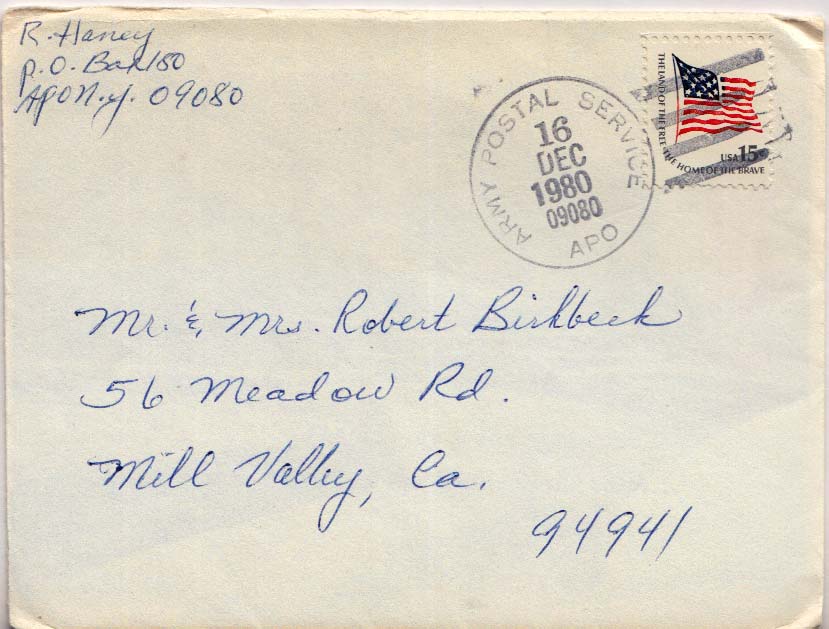 R. Haney
P.O. Box 180
APO N.Y. 09080
ARMY POSTAL SERVICE
16
DEC
1980
09080
APO
THE LAND OF THE FREE · THE HOME OF THE BRAVE
USA 15c
Mr. & Mrs. Robert Birkbeck
56 Meadow Rd.
Mill Valley, Ca.
94941